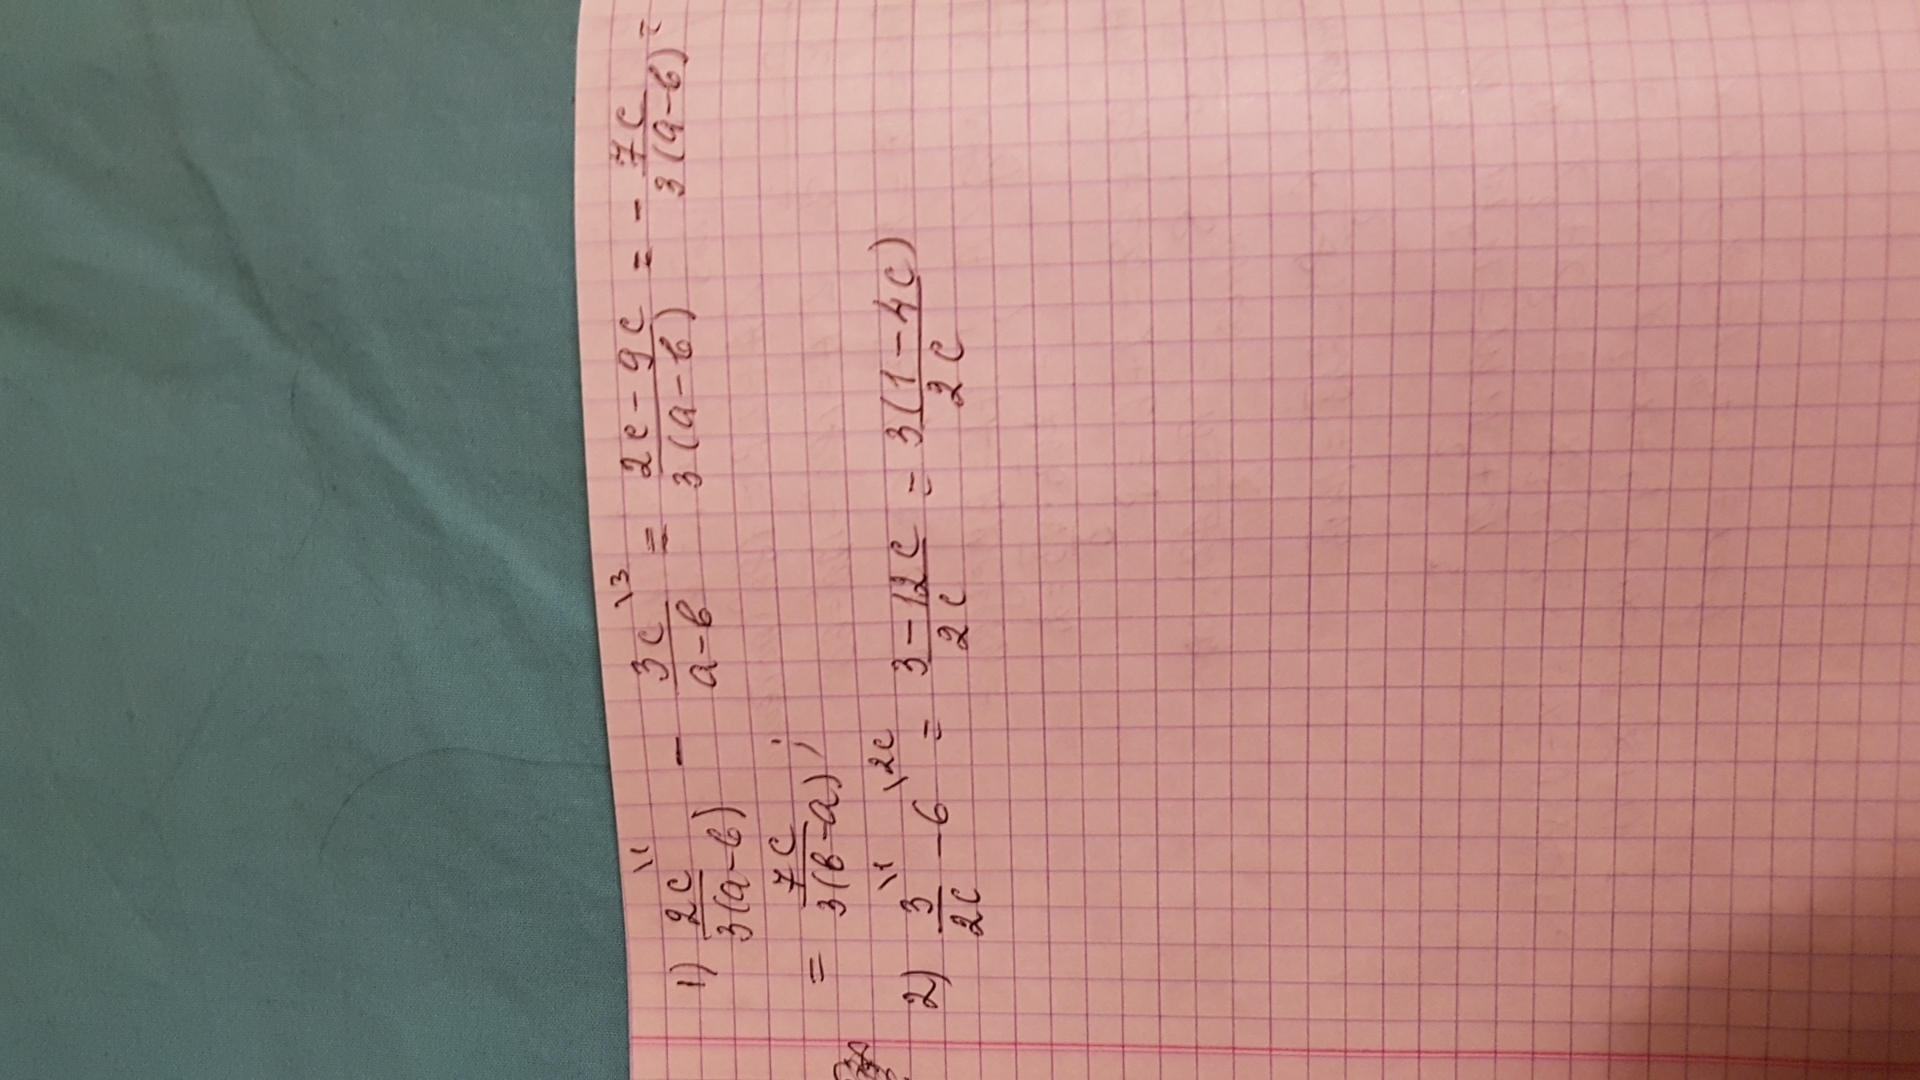 1) \frac{2c}{3(a-b)}^{\1} - \frac{3c}{a-b}^{\3} = \frac{2c-9c}{3(a-b)} = -\frac{7c}{3(a-b)} =
= \frac{7c}{3(b-a)};
2) \frac{3}{2c}^{\1} - 6^{\2c} = \frac{3-12c}{2c} = \frac{3(1-4c)}{2c}